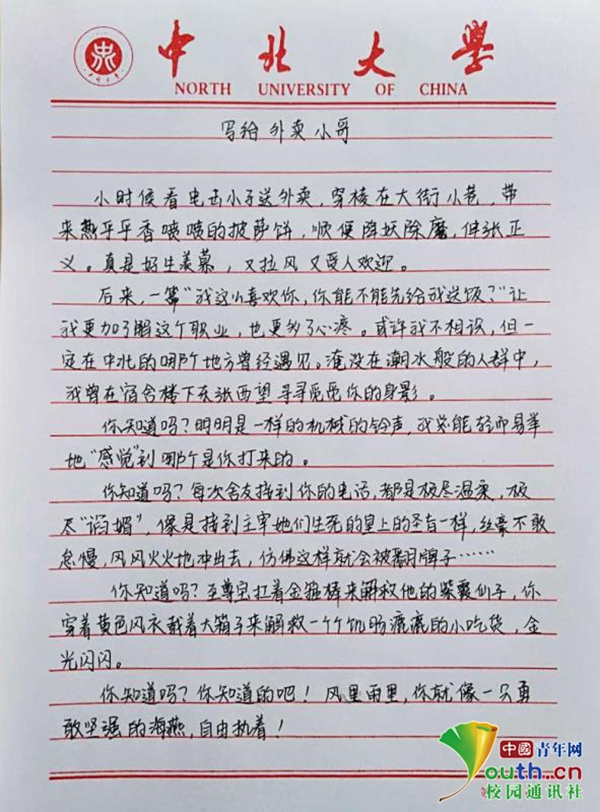 中北大學
NORTH UNIVERSITY OF CHINA
写给外卖小哥
小时候看电击小子送外卖，穿梭在大街小巷，带
来热乎乎香喷喷的披萨饼，顺便降妖除魔，伸张正
义。真是好生羡慕，又拉风又受人欢迎。
后来，一篇“我这么喜欢你，你能不能先给我送饭？”让
我更加了解这个职业，也更多了心疼。或许我不相识，但一
定在中北的哪个地方曾经遇见。淹没在潮水般的人群中，
我曾在宿舍楼下东张西望寻寻觅觅你的身影。
你知道吗？明明是一样的机械的铃声，我总能轻而易举
地“感觉”到哪个是你打来的。
你知道吗？每次舍友接到你的电话，都是极尽温柔，极
尽“谄媚”，像是接到主宰她们生死的皇上的圣旨一样，丝毫不敢
怠慢，风风火火地冲出去，仿佛这样就会被翻牌子……
你知道吗？至尊宝扛着金箍棒来解救他的紫霞仙子，你
穿着黄色风衣载着大箱子来解救一个个饥肠漉漉的小吃货，金
光闪闪。
你知道吗？你知道的吧！风里雨里，你就像一只勇
敢坚强的海燕，自由执着！
中國青年网
youth.cn
校园通讯社